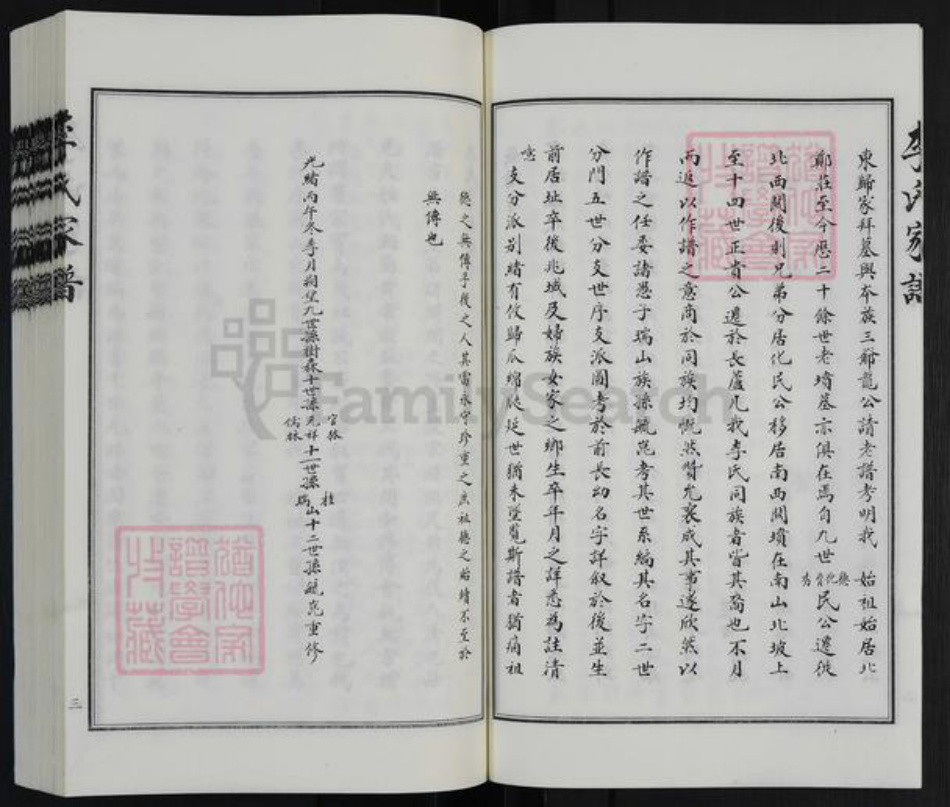 李氏家譜
東歸家拜墓與本族三爺龍公請老譜考明我 始祖始居北
鄭莊至今歷二十餘世老墳墓示俱在焉自九世 民公遷徙
北西關後則兄弟分居化民公移居南西關墳在南山北坡上
至十四世正肯公遷於長蘆凡我李氏同族者皆其裔也不月
而返以作譜之意商於同族均慨然贊允襄成其事遂欣然以
作譜之任委諸愚于瑞山族孫毓崑考其世系編其名字二世
分門五世分支世序支派圖考於前長幼名字詳叙於後並生
前居址卒後兆域及婦族女家之鄉生卒年月之詳悉為註清
支分派別緒有攸歸瓜綿瓞延世猶未墜覽斯譜者猶痛祖
德之無傳子後之人其當永守珍重之庶祖德之始緒不至於
無傳也
光緒丙午冬季月朔望九世孫樹森十世孫元祥官林儒林十一世孫桂山瑞山十二世孫毓崑重修
三
李氏家譜
FamilySearch